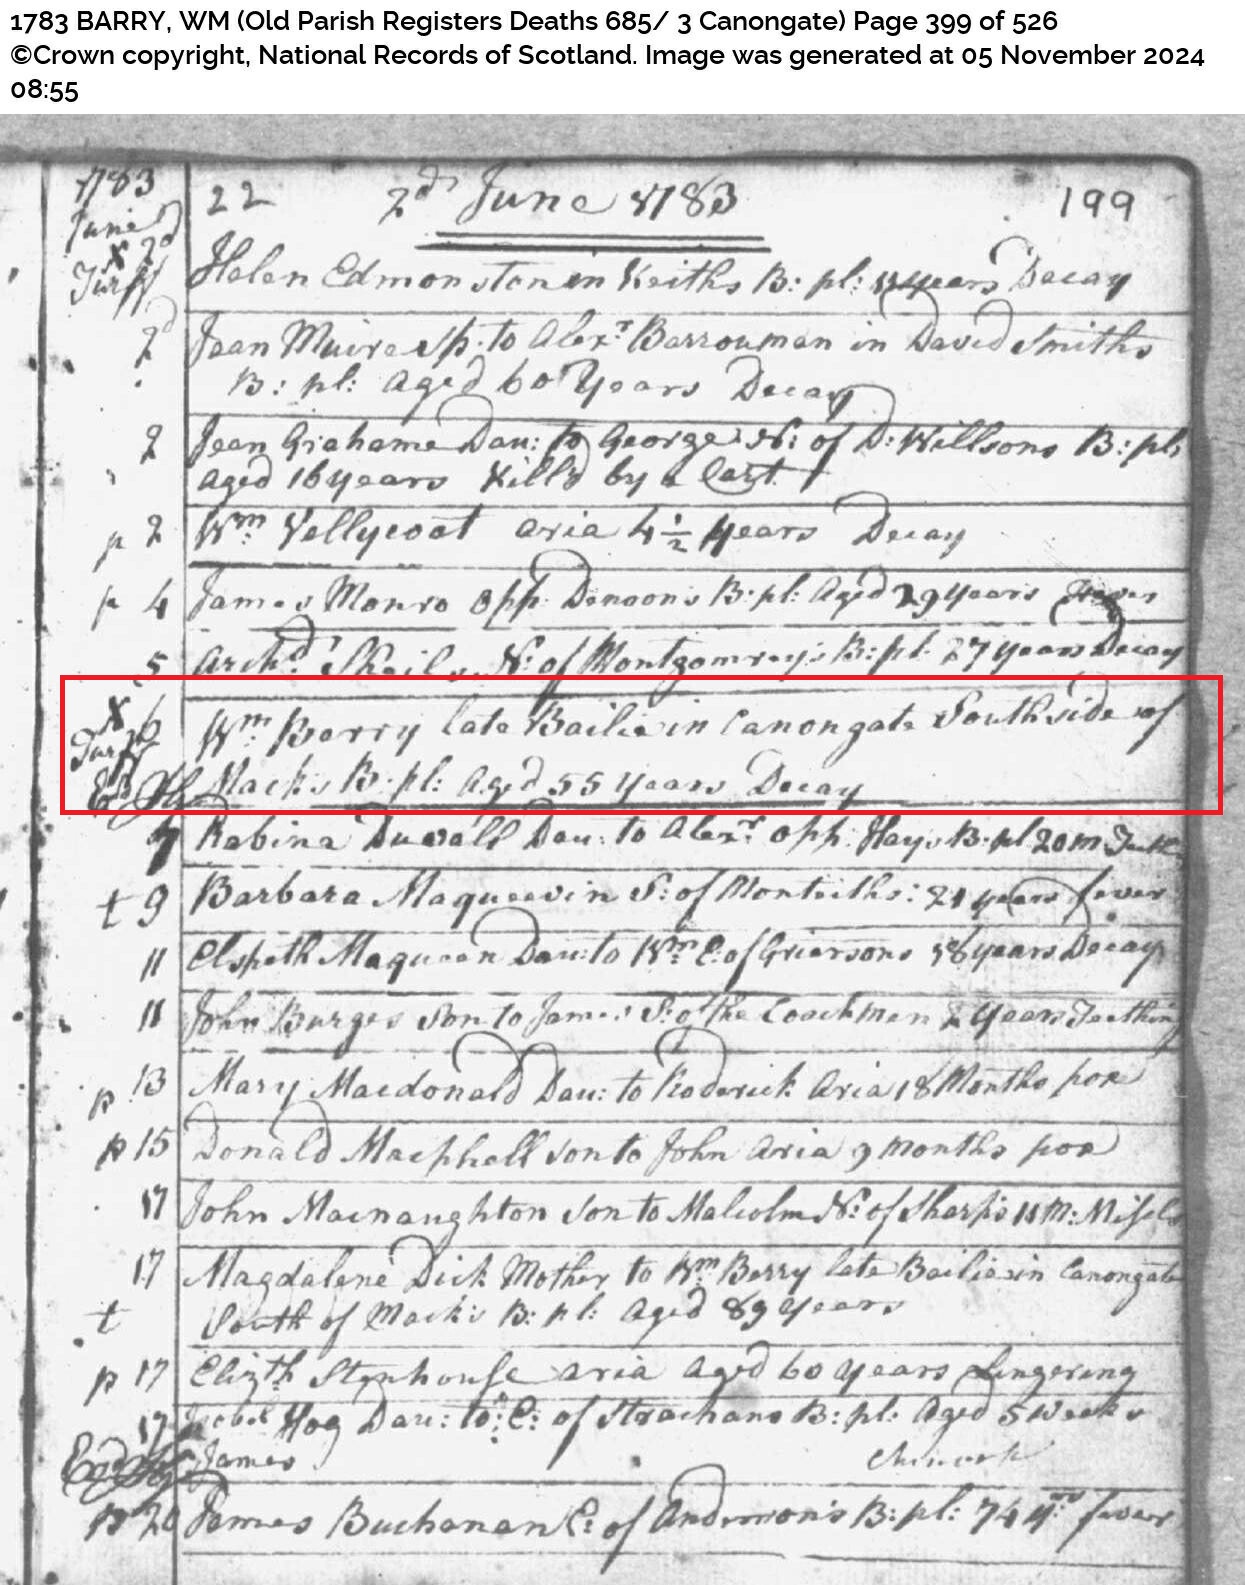 1783 BARRY, WM (Old Parish Registers Deaths 685/ 3 Canongate) Page 399 of 526
©Crown copyright, National Records of Scotland. Image was generated at 05 November 2024
08:55
1783 22 2d June 1783 199
June
X 2d Helen Edmonston in Keiths B: pl: years Decay
Turff
2d Jean Muire sp. to Alexr Barrowman in David Smiths
B: pl: aged 60 Years Decay
2 Jean Grahame Dau: to George N: of D: Willsons B: pl:
aged 16 years Kill'd by a Cart
p 2 Wm Vellycoat aria 4 1/2 Years Decay
p 4 James Monro opp. Denoon's B: pl: Aged 29 Years Fever
5 Archd Sheils N: of Montgomrey's B: pl. 27 years Decay
X 6 Wm Berry late Bailie in Canongate South side of
Turff
Mack's B: pl: Aged 55 years Decay
7 Robina Duvall Dau: to Alexr opp. Hays B: pl 20 m Teeth
t 9 Barbara Maqueen in S: of Monteiths: 21 years fever
11 Elspeth Maqueen Dau: to Wm E: of Griersons years Decay
11 John Burges Son to James S: of the Coachman 2 Years Teething
p 13 Mary Macdonald Dau: to Roderick Aria 18 Months pox
p 15 Donald Macphell son to John aria 9 months pox
17 John Macnaughton son to Malcolm N: of Sharp's 11 M: Misels
17 Magdalene Dick Mother to Wm Berry late Bailie in Canongate
t South of Mack's B: pl: aged 89 years
p 17 Elizth Stenhouse aria aged 60 years Lingering
17 Isobel Hog Dau: to E: of Strachans B: pl: Aged 5 Weeks
James Chincok
p 20 James Buchanan E: of Anderson's B: pl: 74 yrs fever